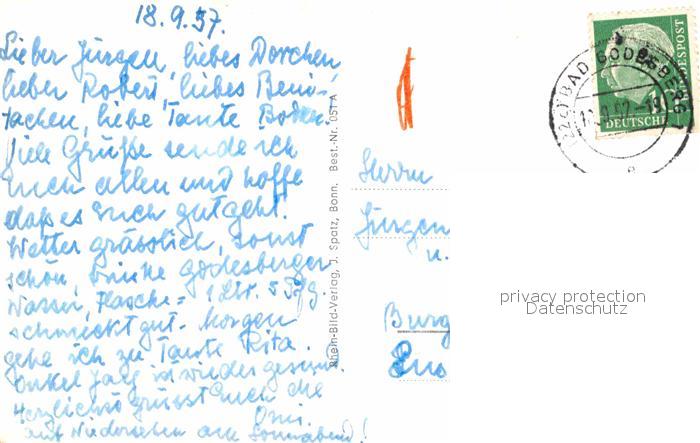 18.9.57.
Lieber Jürgen, liebes Dorchen
lieber Robert, liebes Beni-
tachen, liebe Tante
Viele Grüße sende ich
Euch allen und hoffe
daß es Euch gutgeht.
Wetter grässlich, sonst
schön, trinke Godesberger
Wasser, Flasche = 1 Ltr. 5
schmeckt gut. Morgen
gehe ich zu Tante Rita.
Onkel ist wieder gesund.
Herzlichst grüsst Euch die
Omi.
auf Wiedersehen am Sonnabend!
Rhein-Bild-Verlag, J. Spatz, Bonn. Best.-Nr. 051 A
BAD GODESBERG
DEUTSCHE BUNDESPOST
Herrn
Jürgen
u.
Burg
privacy protection
Datenschutz